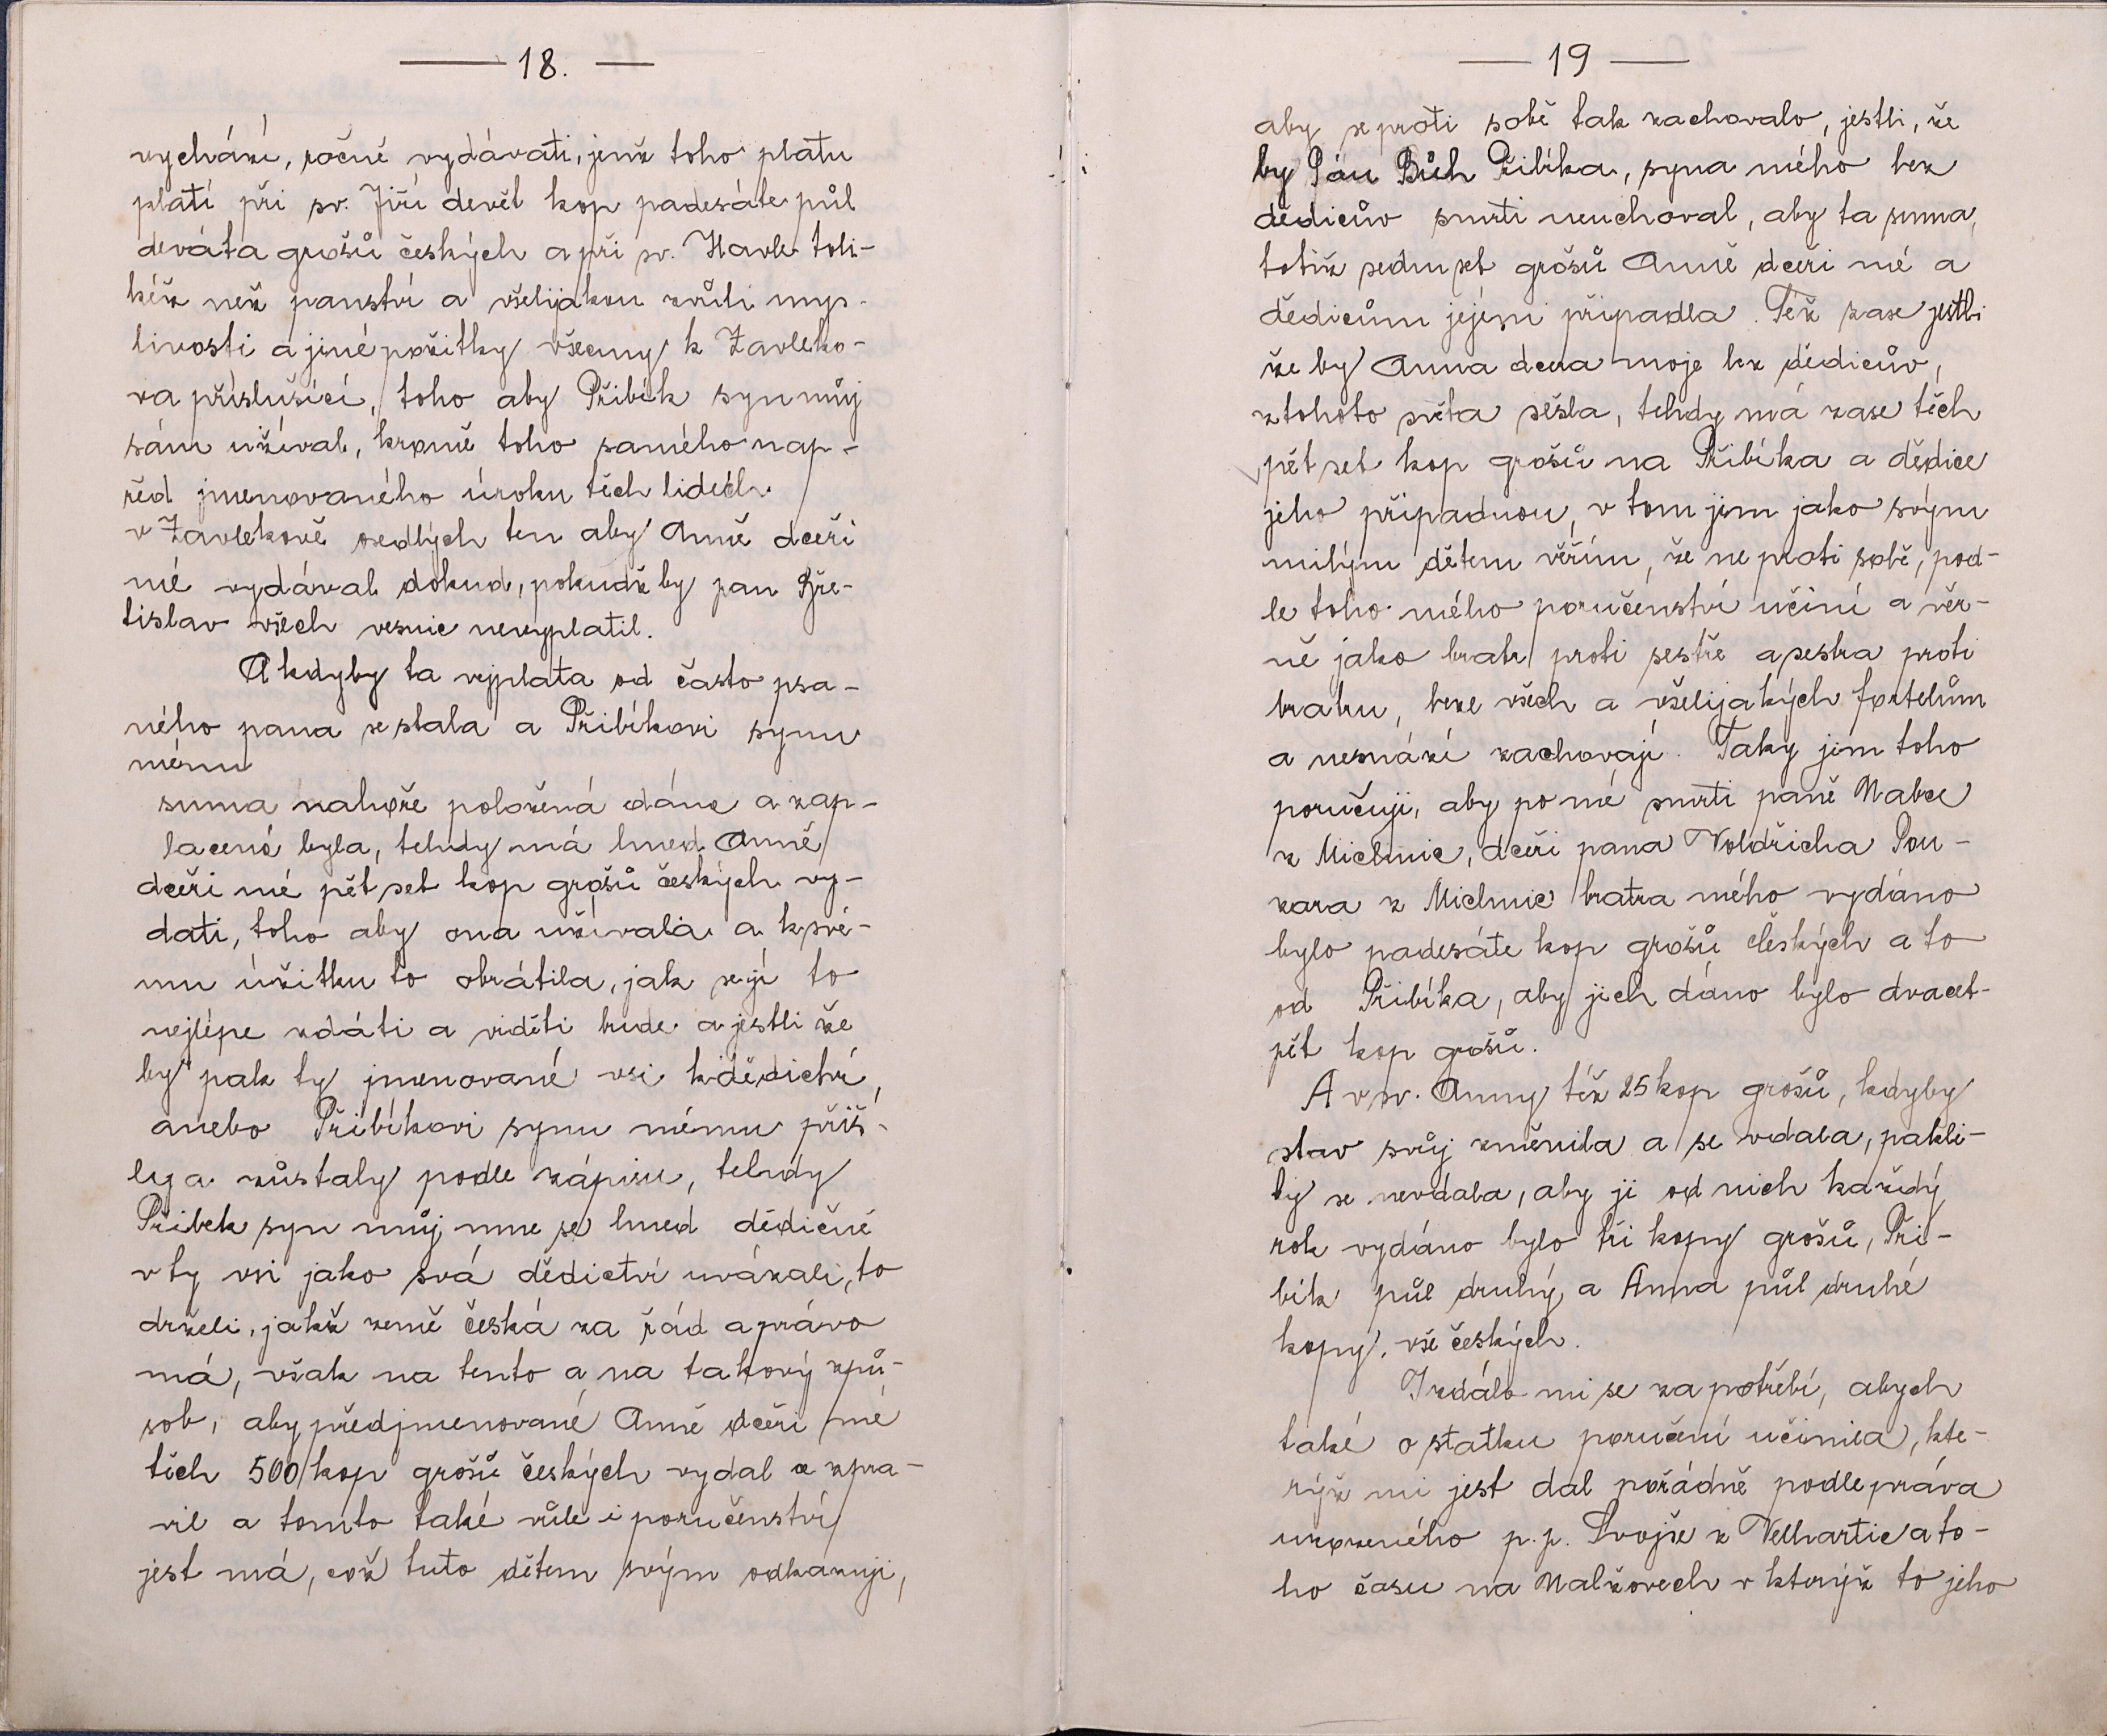 — 18. —
vychází, ročně vydávati, jenž toho platu
platí při sv. Jiří devět kop padesáte půl
deváta grošů českých a při sv. Havle toli-
kéž než panství a všelijakou zvůli mys-
livosti a jiné požitky všecny k Zavleko-
va příslušící, toho aby Přibík syn můj
sám užíval, kromě toho samého nap-
řed jmenovaného úroku těch lidech
v Zavlekově sedlých ten aby Anně dceři
mé vydával dokud, pokudž by pan Bře-
tislav všech vesnic nevyplatil.
A kdyby ta vejplata od často psa-
ného pana se stala a Přibíkovi synu
mému
suma nahoře položená dána a zap-
lacená byla, tehdy má hned Anně
dceři mé pět set kop grošů českých vy-
dati, toho aby ona užívala a k své-
mu úžitku to obrátila, jak se jí to
nejlépe zdáti a viděti bude a jestli že
by pak ty jmenované vsi k dědictví,
anebo Přibíkovi synu mému přiš-
ly a zůstaly podle zápisu, tehdy
Přibek syn můj mne se hned dědičně
v ty vsi jako svá dědictví uvázali, to
drželi, jakž země česká za řád a právo
má, však na tento a na takový způ-
sob, aby předjmenované Anně dceři mé
těch 500 kop grošů českých vydal a zpra-
vil a tomto také vůle i poručenství
jest má, což tuto dětem svým odkazuji,
— 19 —
aby se proti sobě tak zachovalo, jestli, že
by Pán Bůh Přibíka, syna mého bez
dědicův smrti neuchoval, aby ta suma,
totiž sedm set grošů Anně dceři mé a
dědicům jejém připadla. Též zase jestli
že by Anna dcera moje bez dědicův,
z tohoto světa sešla, tehdy má zase těch
pět set kop grošů na Přibíka a dědice
jeho připadnou, v tom jim jako svým
milým dětem věřím, že se proti sobě, pod-
le toho mého poručenství učiní a věr-
ně jako bratr proti sestře a sestra proti
bratru, beze všech a všelijakých fortelům
a nesnází zachovají. Taky jim toho
poručuji, aby po mé smrti paně Mabce
z Michnic, dceři pana Voldřicha Pou-
zara z Michnic bratra mého vydáno
bylo padesáte kop grošů českých a to
od Přibíka, aby jich dáno bylo dvacet-
pět kop grošů.
A v sv. Anny též 25 kop grošů, kdyby
stav svůj změnila a se vdala, pakli-
by se nevdala, aby ji od nich každý
rok vydáno bylo tři kopy grošů, Při-
bík půl druhý a Anna půl druhé
kopy, vše českých.
I zdálo mi se za potřebí, abych
také o statku poručení učinila, kte-
rýž mi jest dal pořádně podle práva
urozeného p. p. Dvojše z Velhartic a to-
ho času na Malžovech v kterýž to jeho